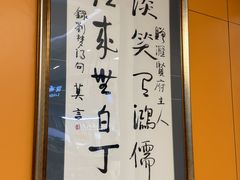 醉涯賢府主人
談笑有鴻儒
往來無白丁
錄劉夢得句 莫言